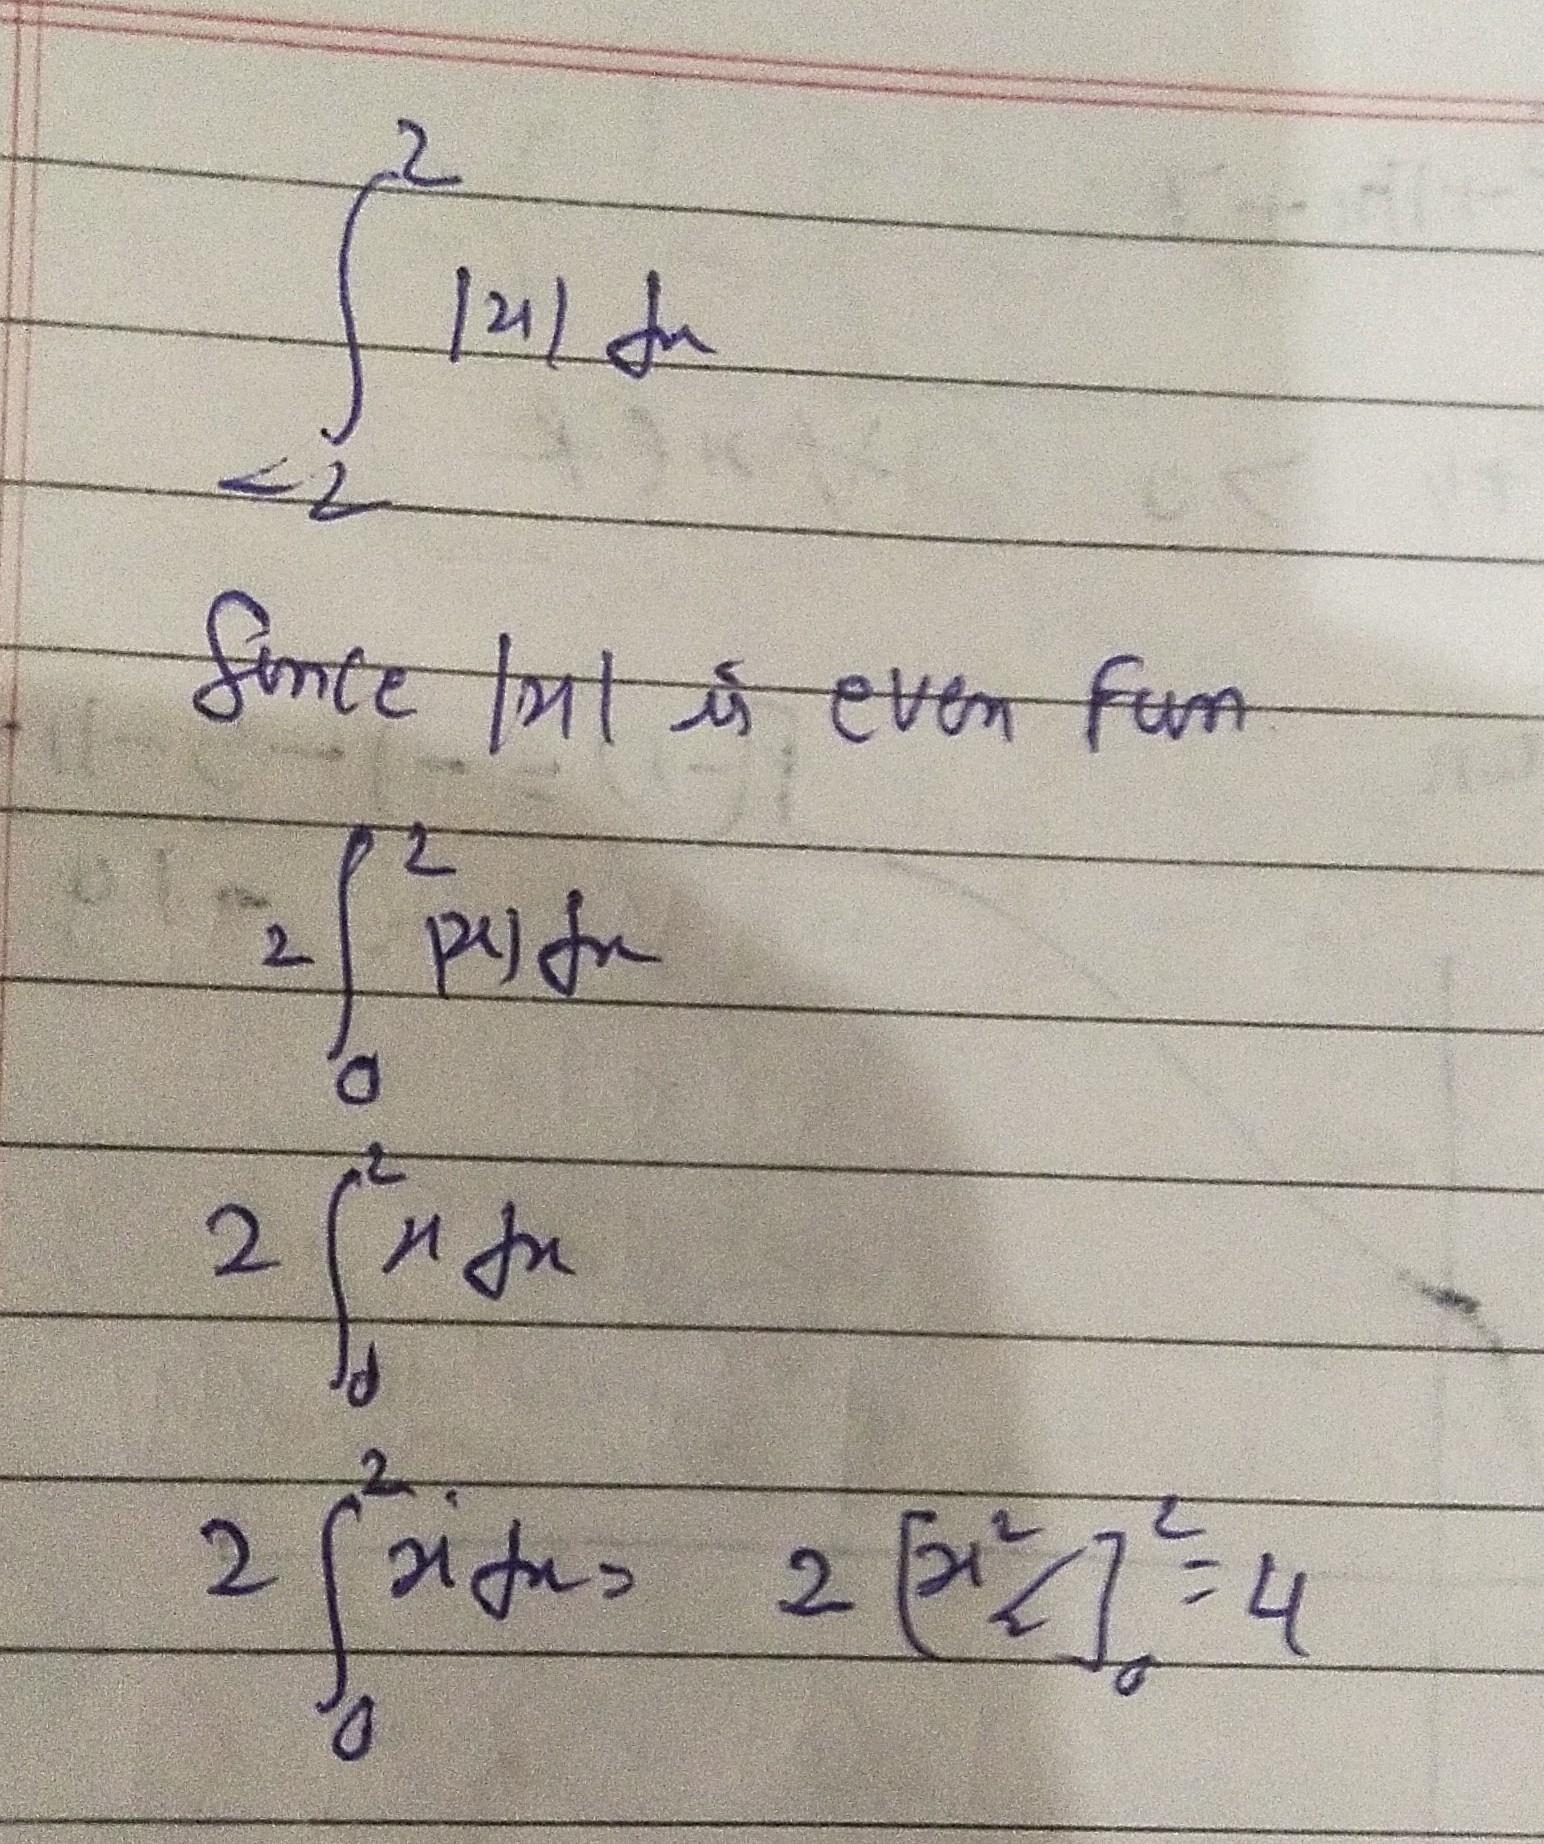 ∫_{-2}^{2} |x| dx
Since |x| is even fun
2 ∫_{0}^{2} |x| dx
2 ∫_{0}^{2} x dx
2 ∫_{0}^{2} x dx = 2 [x²/2]_{0}^{2} = 4